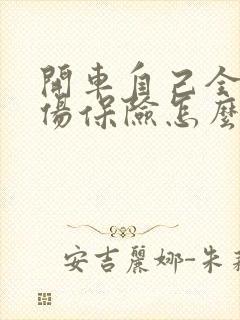 開車自己全
傷保險怎麼
安吉麗娜-朱